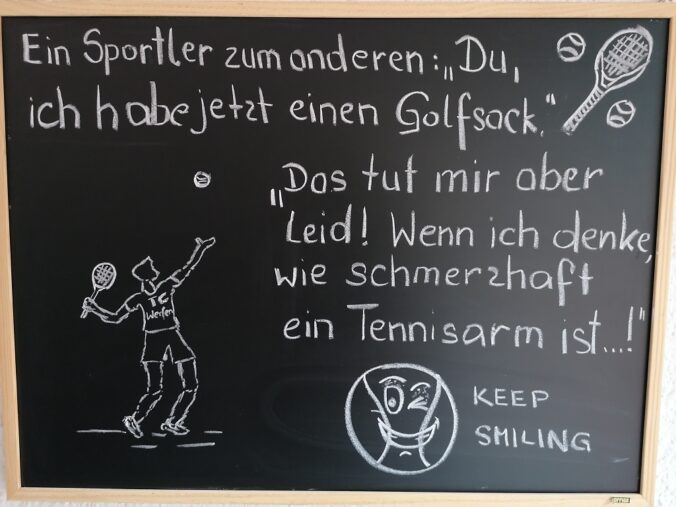 Ein Sportler zum anderen: „Du,
ich habe jetzt einen Golfsack."
„Das tut mir aber
Leid! Wenn ich denke,
wie schmerzhaft
ein Tennisarm ist...!"
TC
Werfen
KEEP
SMILING